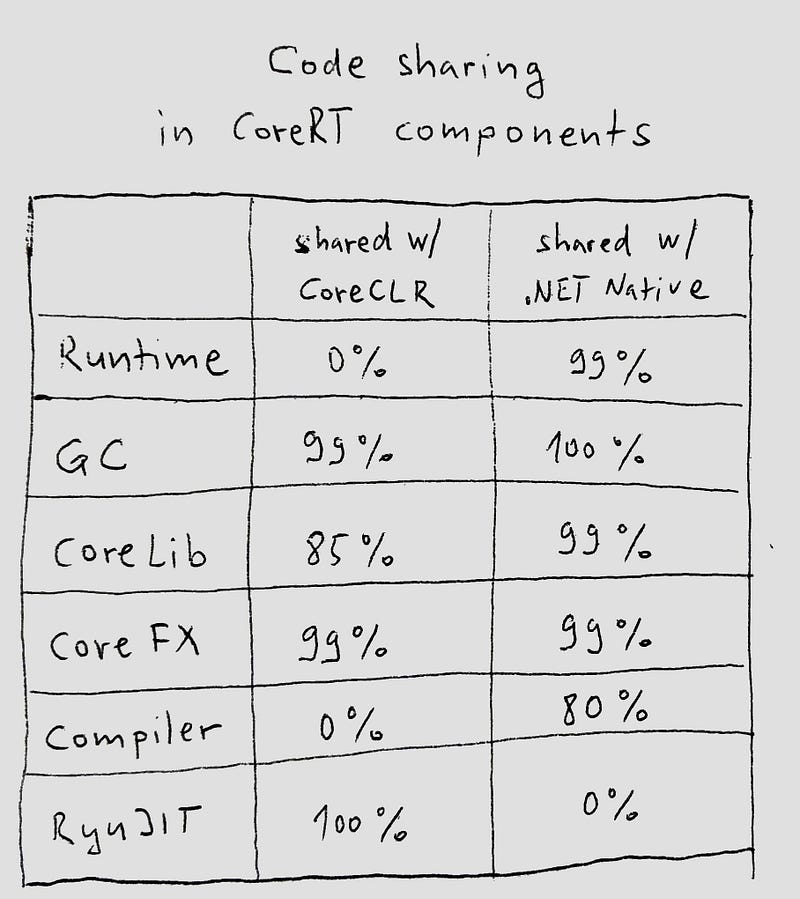 Code sharing
in CoreRT components
shared w/ shared w/
CoreCLR .NET Native
Runtime 0% 99%
GC 99% 100%
CoreLib 85% 99%
Core FX 99% 99%
Compiler 0% 80%
RyuJIT 100% 0%